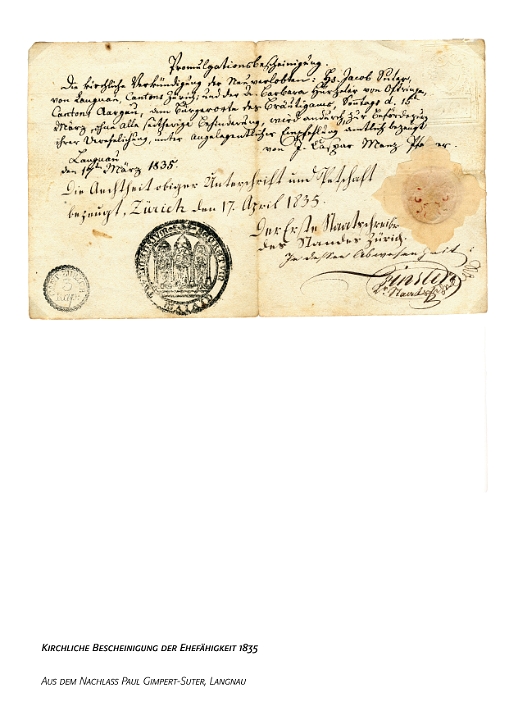 Promulgationsbescheinigung.
Die kirchliche Verkündigung der Neuverlobten: Hs. Jacob Suter,
von Langnau, Cantons Zürich, und der J. Barbara Hürzeler von Oftringen,
Cantons Aargau, am Bürgerorte des Bräutigams, Sontags d. 15.
März, ohne alle seitherige Behinderung, wird andurch zur Beförderung
ihrer Verehelichung, unter angelegentlicher Empfehlung amtlich bezeugt
Langnau von J. Caspar Menz Pfarrer.
den 17. März 1835.
Die Aechtheit obiger Unterschrift und Petschaft
bezeugt, Zürich den 17. April 1835.
Der Erste Staatschreiber
des Standes Zürich.
In dessen Abwesenheit:
2. Staatsschreiber
KIRCHLICHE BESCHEINIGUNG DER EHEFÄHIGKEIT 1835
AUS DEM NACHLASS PAUL GIMPERT-SUTER, LANGNAU